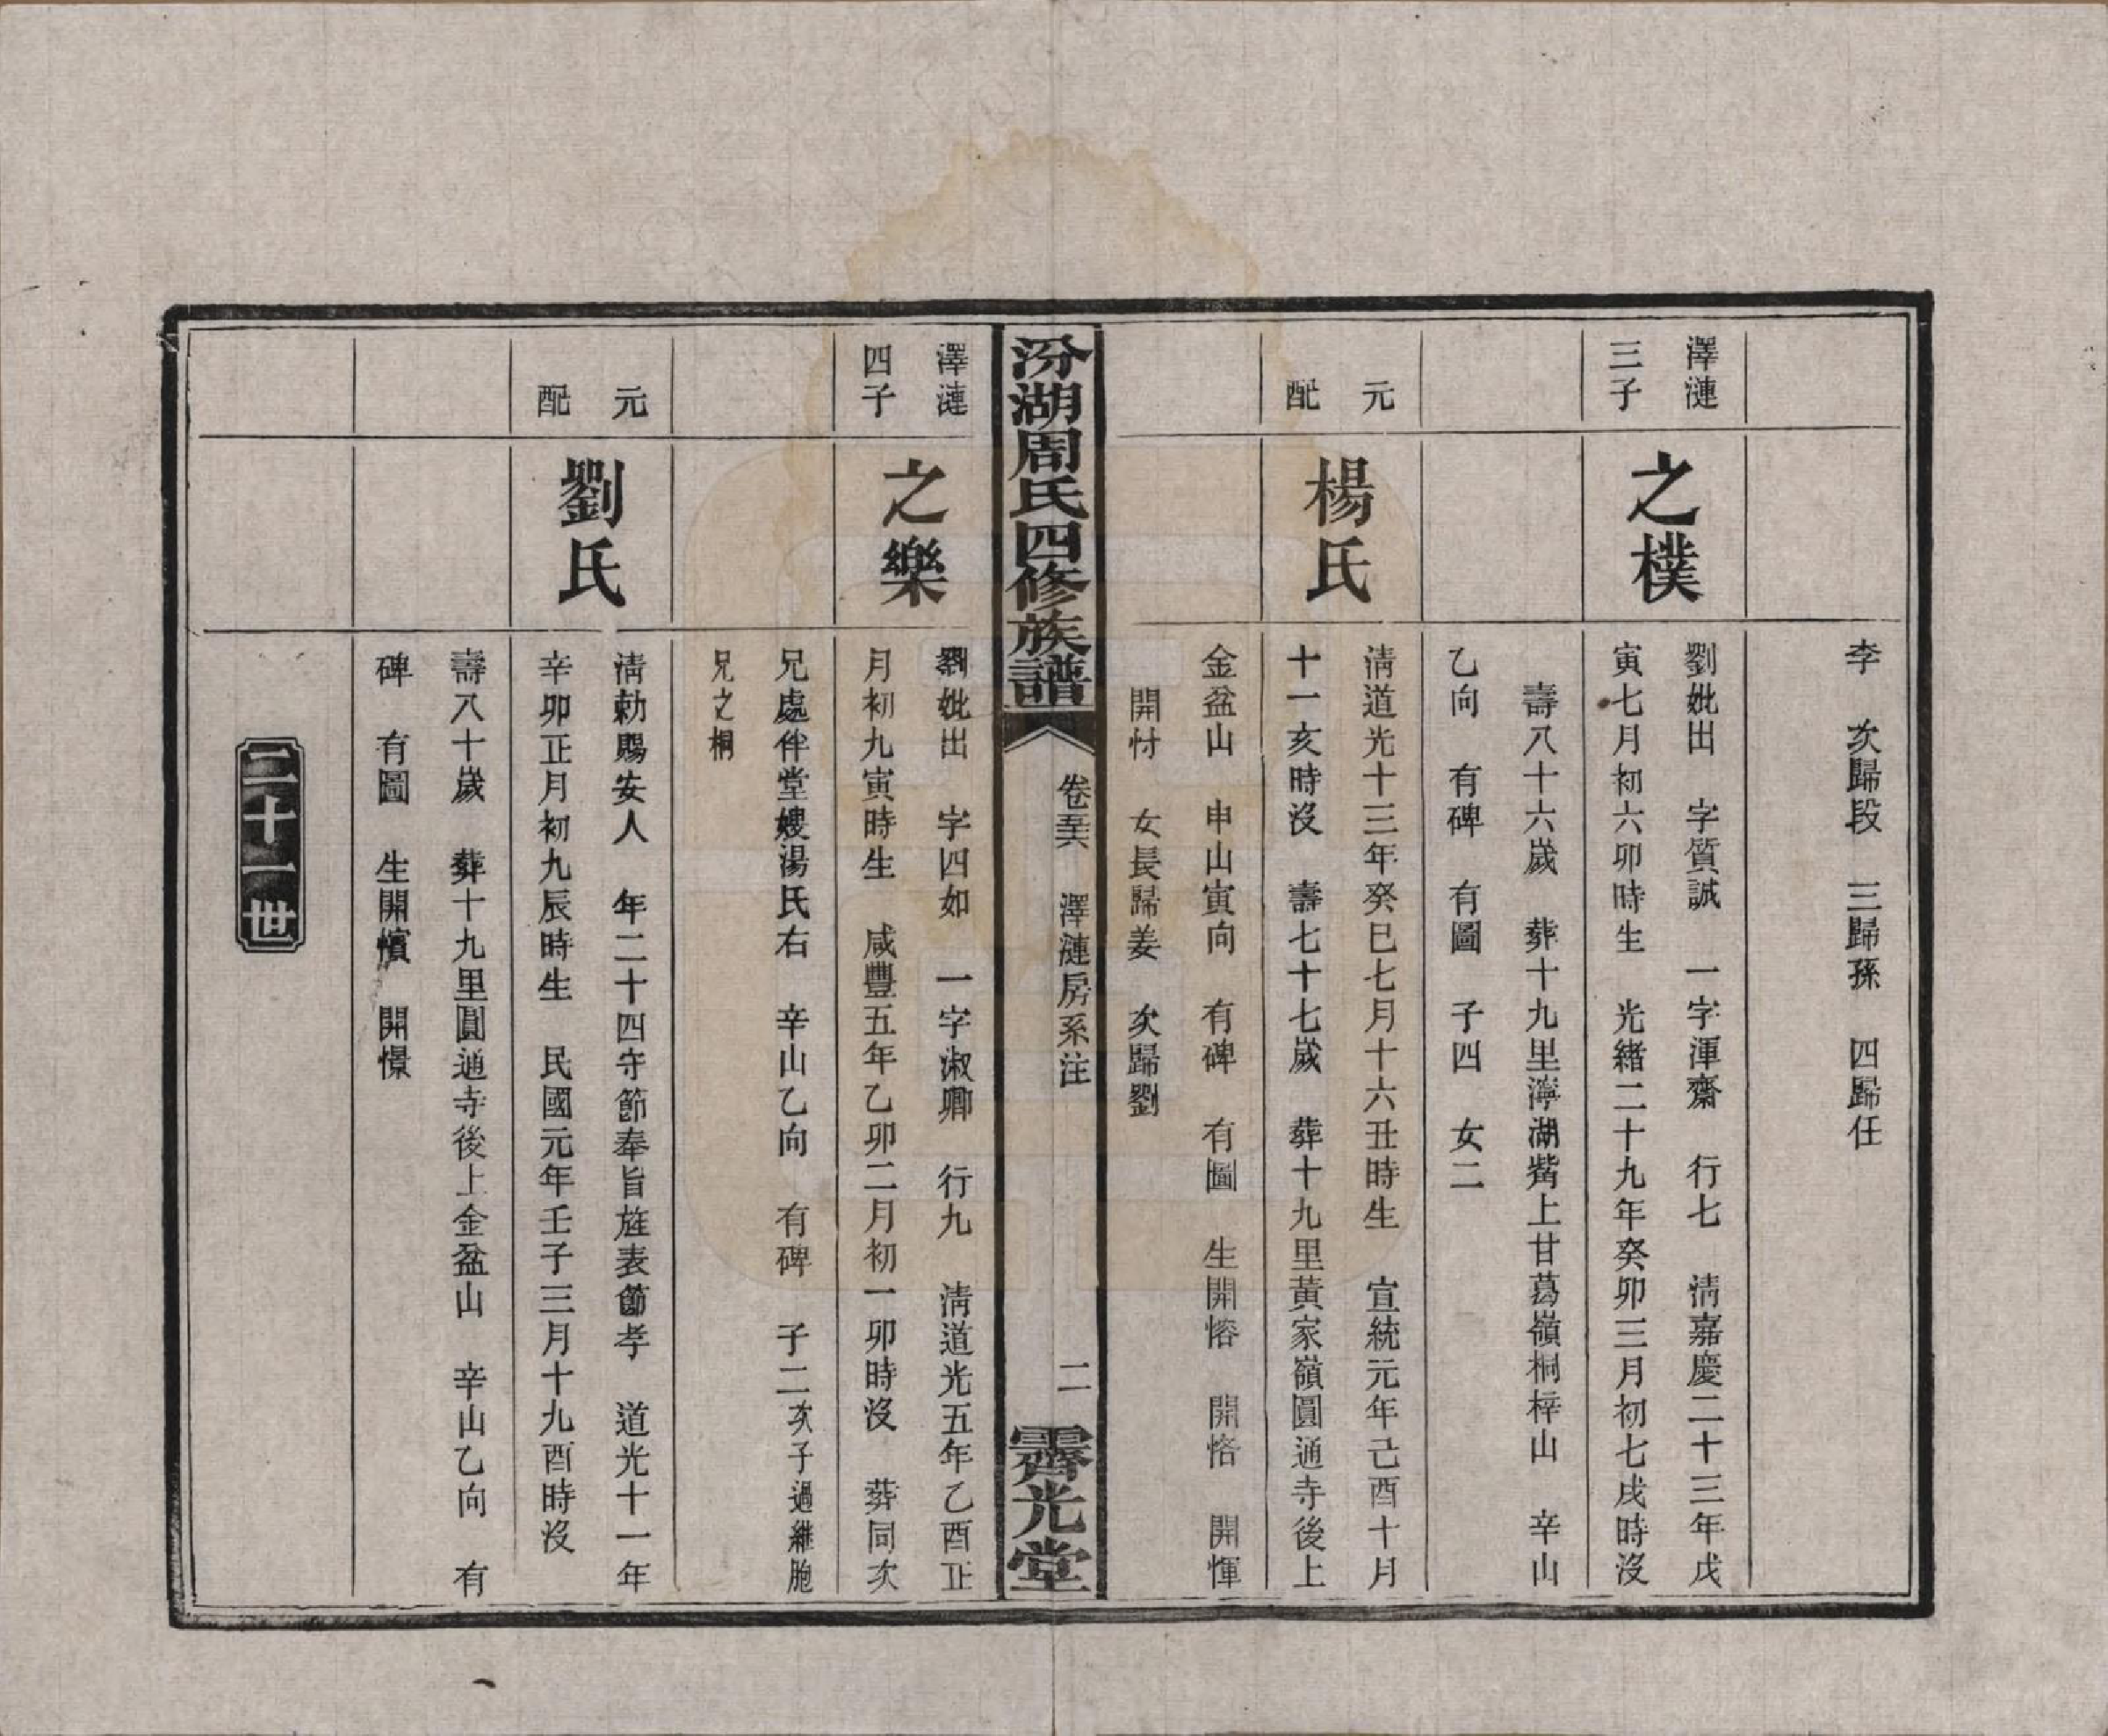 李　次歸段　三歸孫　四歸任
澤漣
三子
之樸
劉妣出　字質誠　一字渾齋　行七　清嘉慶二十三年戊
寅七月初六卯時生　光緒二十九年癸卯三月初七戌時沒
壽八十六歲　葬十九里濘湖觜上甘葛嶺桐梓山　辛山
乙向　有碑　有圖　子四　女二
元
配
楊氏
清道光十三年癸巳七月十六丑時生　宣統元年己酉十月
十一亥時沒　壽七十七歲　葬十九里黃家嶺圓通寺後上
金盆山　申山寅向　有碑　有圖　生開愹　開悋　開惲
開忖　女長歸姜　次歸劉
汾湖周氏四修族譜
卷　澤漣房系注
二
霽光堂
澤漣
四子
之樂
劉妣出　字四如　一字淑卿　行九　清道光五年乙酉正
月初九寅時生　咸豐五年乙卯二月初一卯時沒　葬同次
兄處伴堂嫂湯氏右　辛山乙向　有碑　子二次子過繼胞
兄之桐
元
配
劉氏
清勅賜安人　年二十四守節奉旨旌表節孝　道光十一年
辛卯正月初九辰時生　民國元年壬子三月十九酉時沒
壽八十歲　葬十九里圓通寺後上金盆山　辛山乙向　有
碑　有圖　生開懭　開憬
二十一世